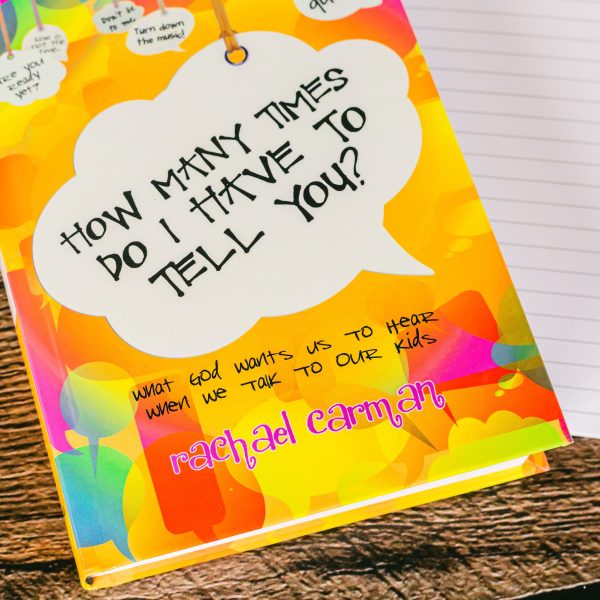 Don't be
to
Turn down
the music!
Now is
not the
time.
Are you
Ready
yet?
HOW MANY TIMES
DO I HAVE TO
TELL YOU?
what God wants us to hear
when we talk to our kids
rachael carman